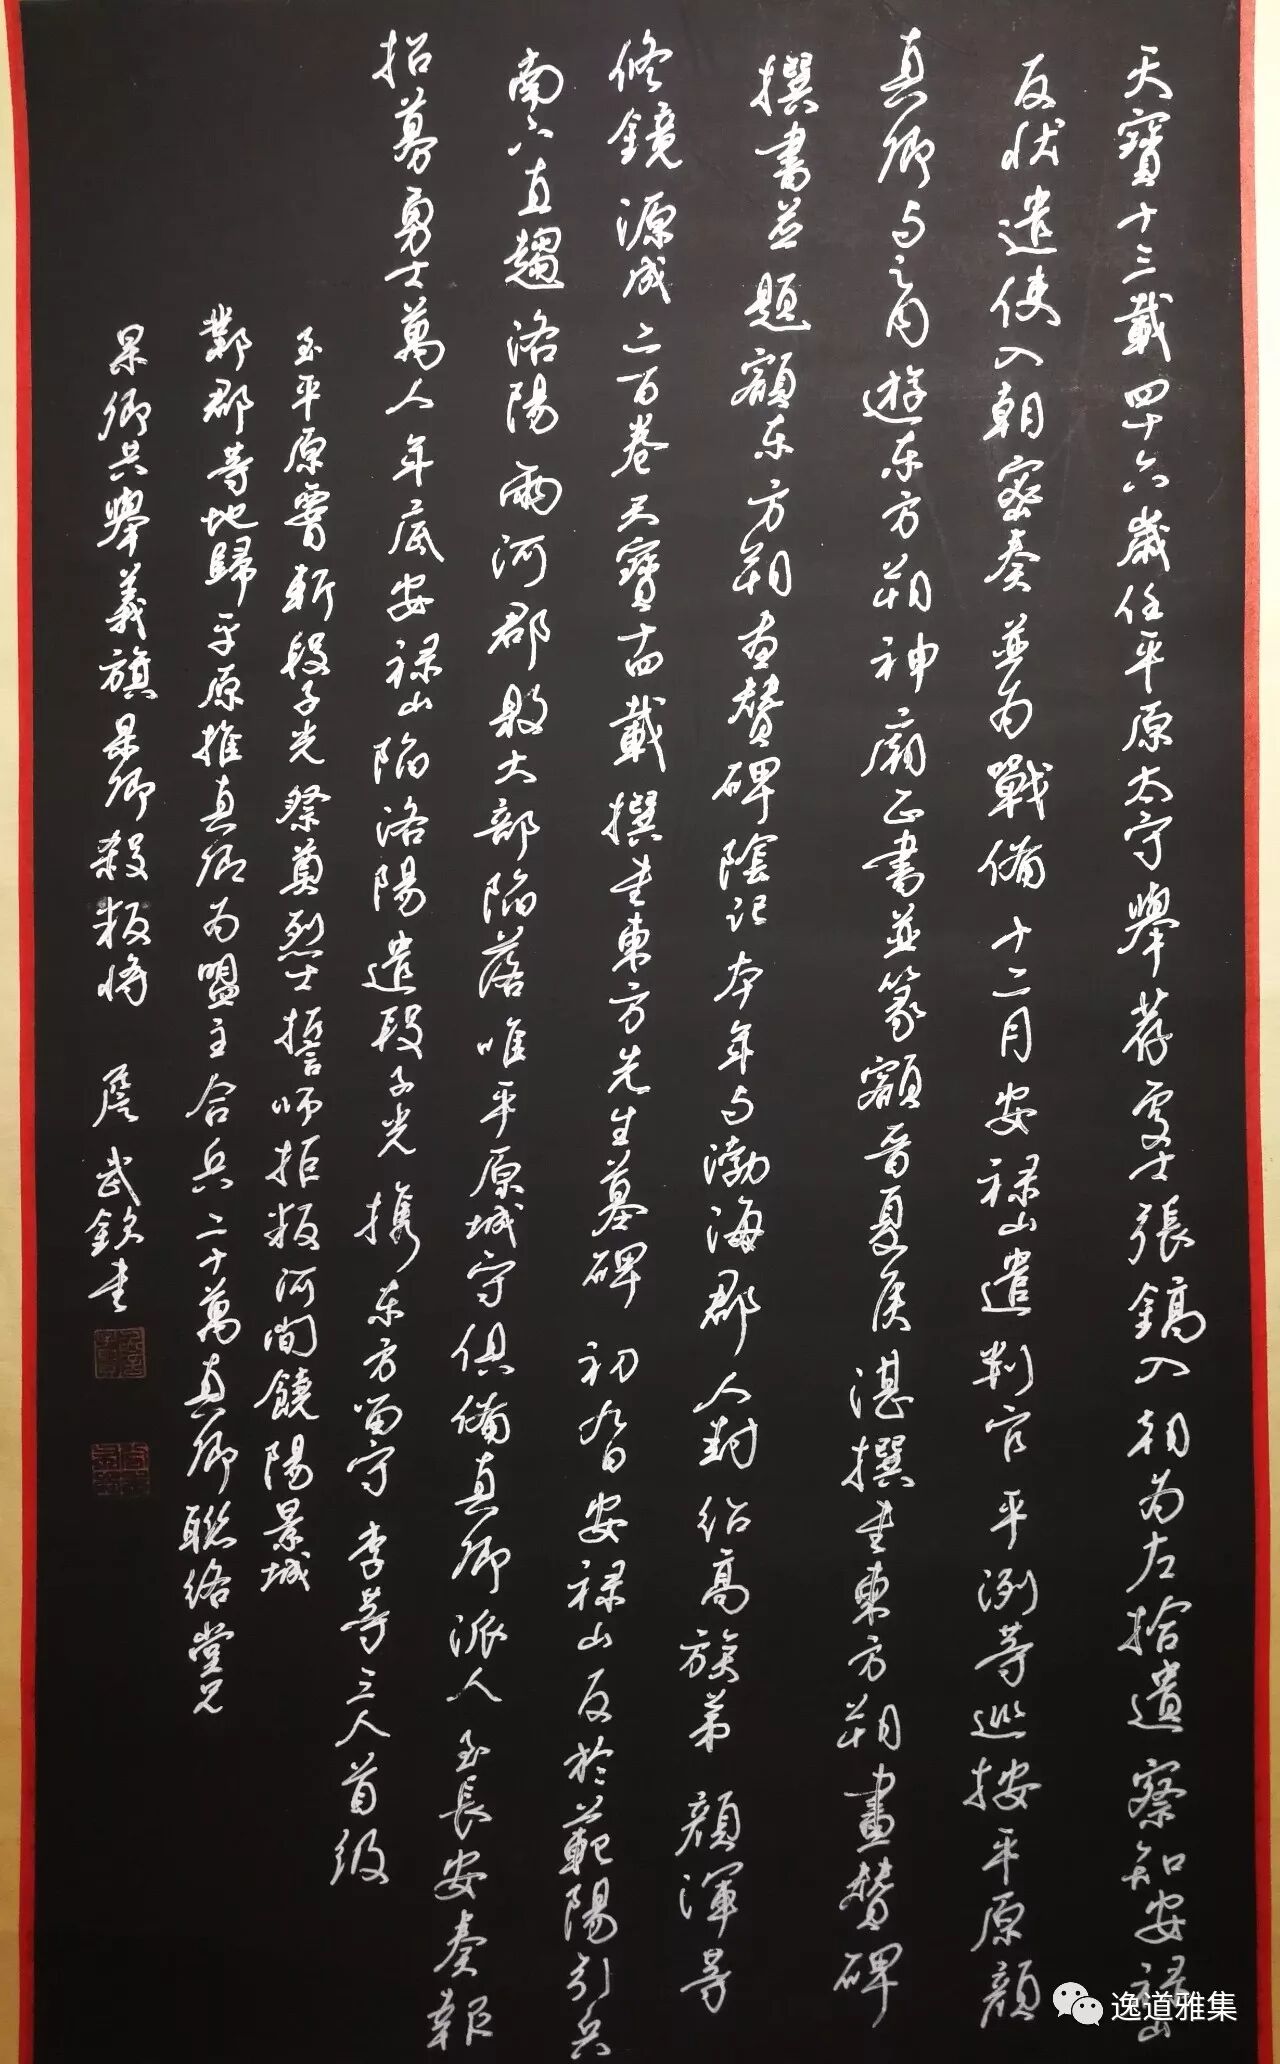 天寶十三載四十六歲任平原太守舉荐處士張鎬入朝為左拾遺察知安禄山
反状遣使入朝密奏並为戰備十二月安禄山遣判官平冽等巡按平原顔
真卿与之同遊东方朔神廟正書並篆額晋夏侯湛撰书東方朔畫贊碑
撰書并題額东方朔画贊碑陰记本年与渤海郡人封绍高族弟顔渾等
修鏡源成二百卷天寶十四載撰书東方先生墓碑初九日安禄山反於范陽引兵
南下直趨洛陽兩河郡縣大部陷落唯平原城守俱備真卿派人至長安奏報
招募勇士萬人年底安禄山陷洛陽遣段子光携东方留守李等三人首级
至平原腰斬段子光祭奠烈士誓師拒叛河间饒陽景城
鄴郡等地歸平原推真卿为盟主合兵二十萬真卿聯络堂兄
杲卿共舉義旗杲卿殺叛将 詹武欽书
逸道雅集